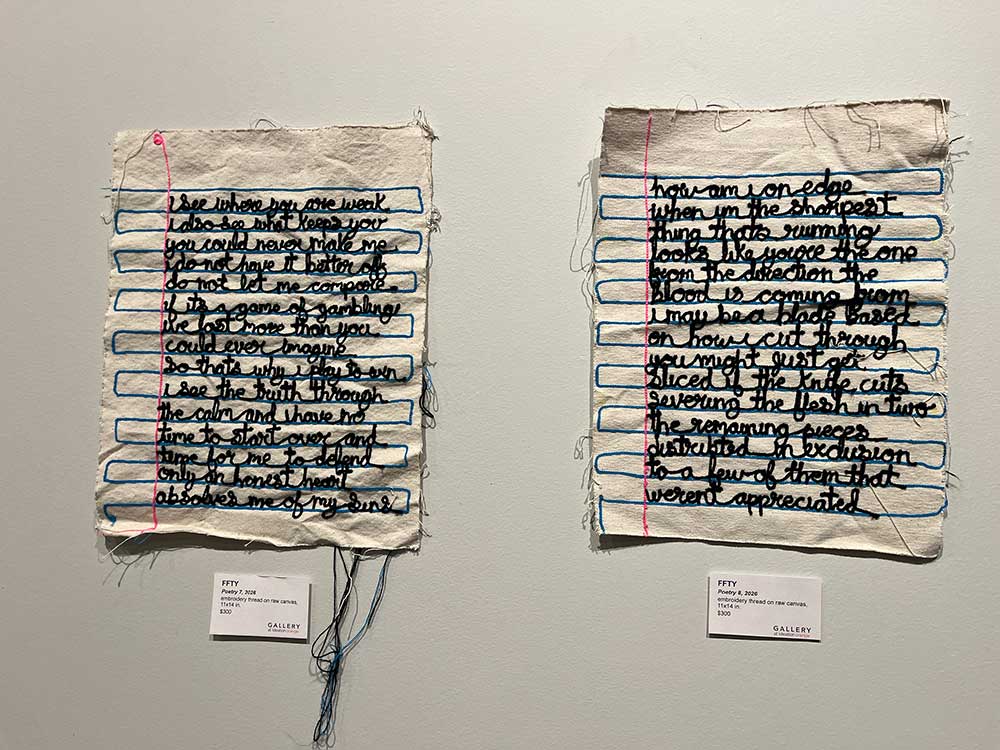 i see where you are weak
i also see what keeps you
you could never make me
i do not have it better off
do not let me compare
if its a game of gambling
ive lost more than you
could ever imagine
so thats why i play to win
i see the truth through
the calm and i have no
time to start over and
time for me to defend
only an honest heart
absolves me of my sins
FFTY
Poetry 7, 2026
embroidery thread on raw canvas,
11x14 in.
$300
GALLERY
at ideationorange
how am i on edge
when im the sharpest
thing thats running
looks like youre the one
from the direction the
blood is coming from
i may be a blade based
on how i cut through
you might just get
sliced if the knife cuts
severing the flesh in two
the remaining pieces
distributed in exclusion
to a few of them that
werent appreciated
FFTY
Poetry 8, 2026
embroidery thread on raw canvas,
11x14 in.
$300
GALLERY
at ideationorange